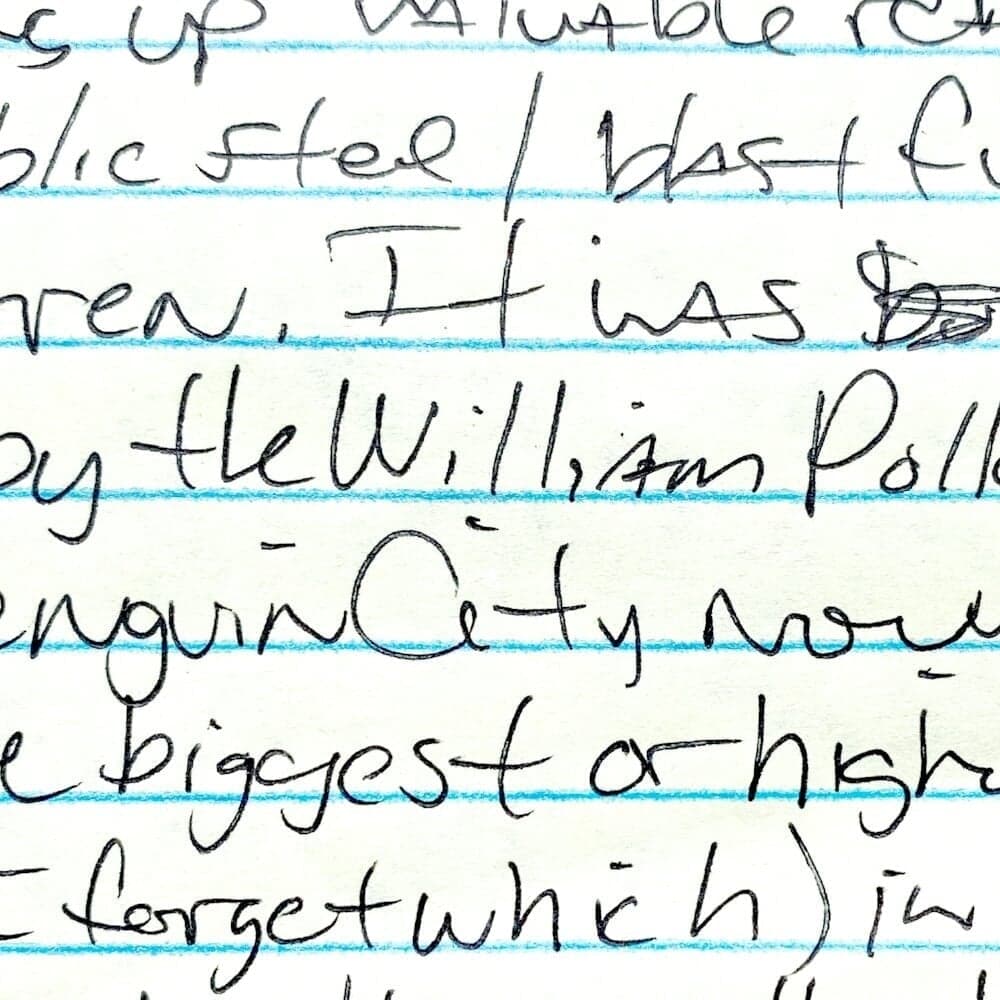 s up valuable
blic steel / blast fu
ren. It was
by the William Poll
enguin City now
e biggest or high
I forget which) in